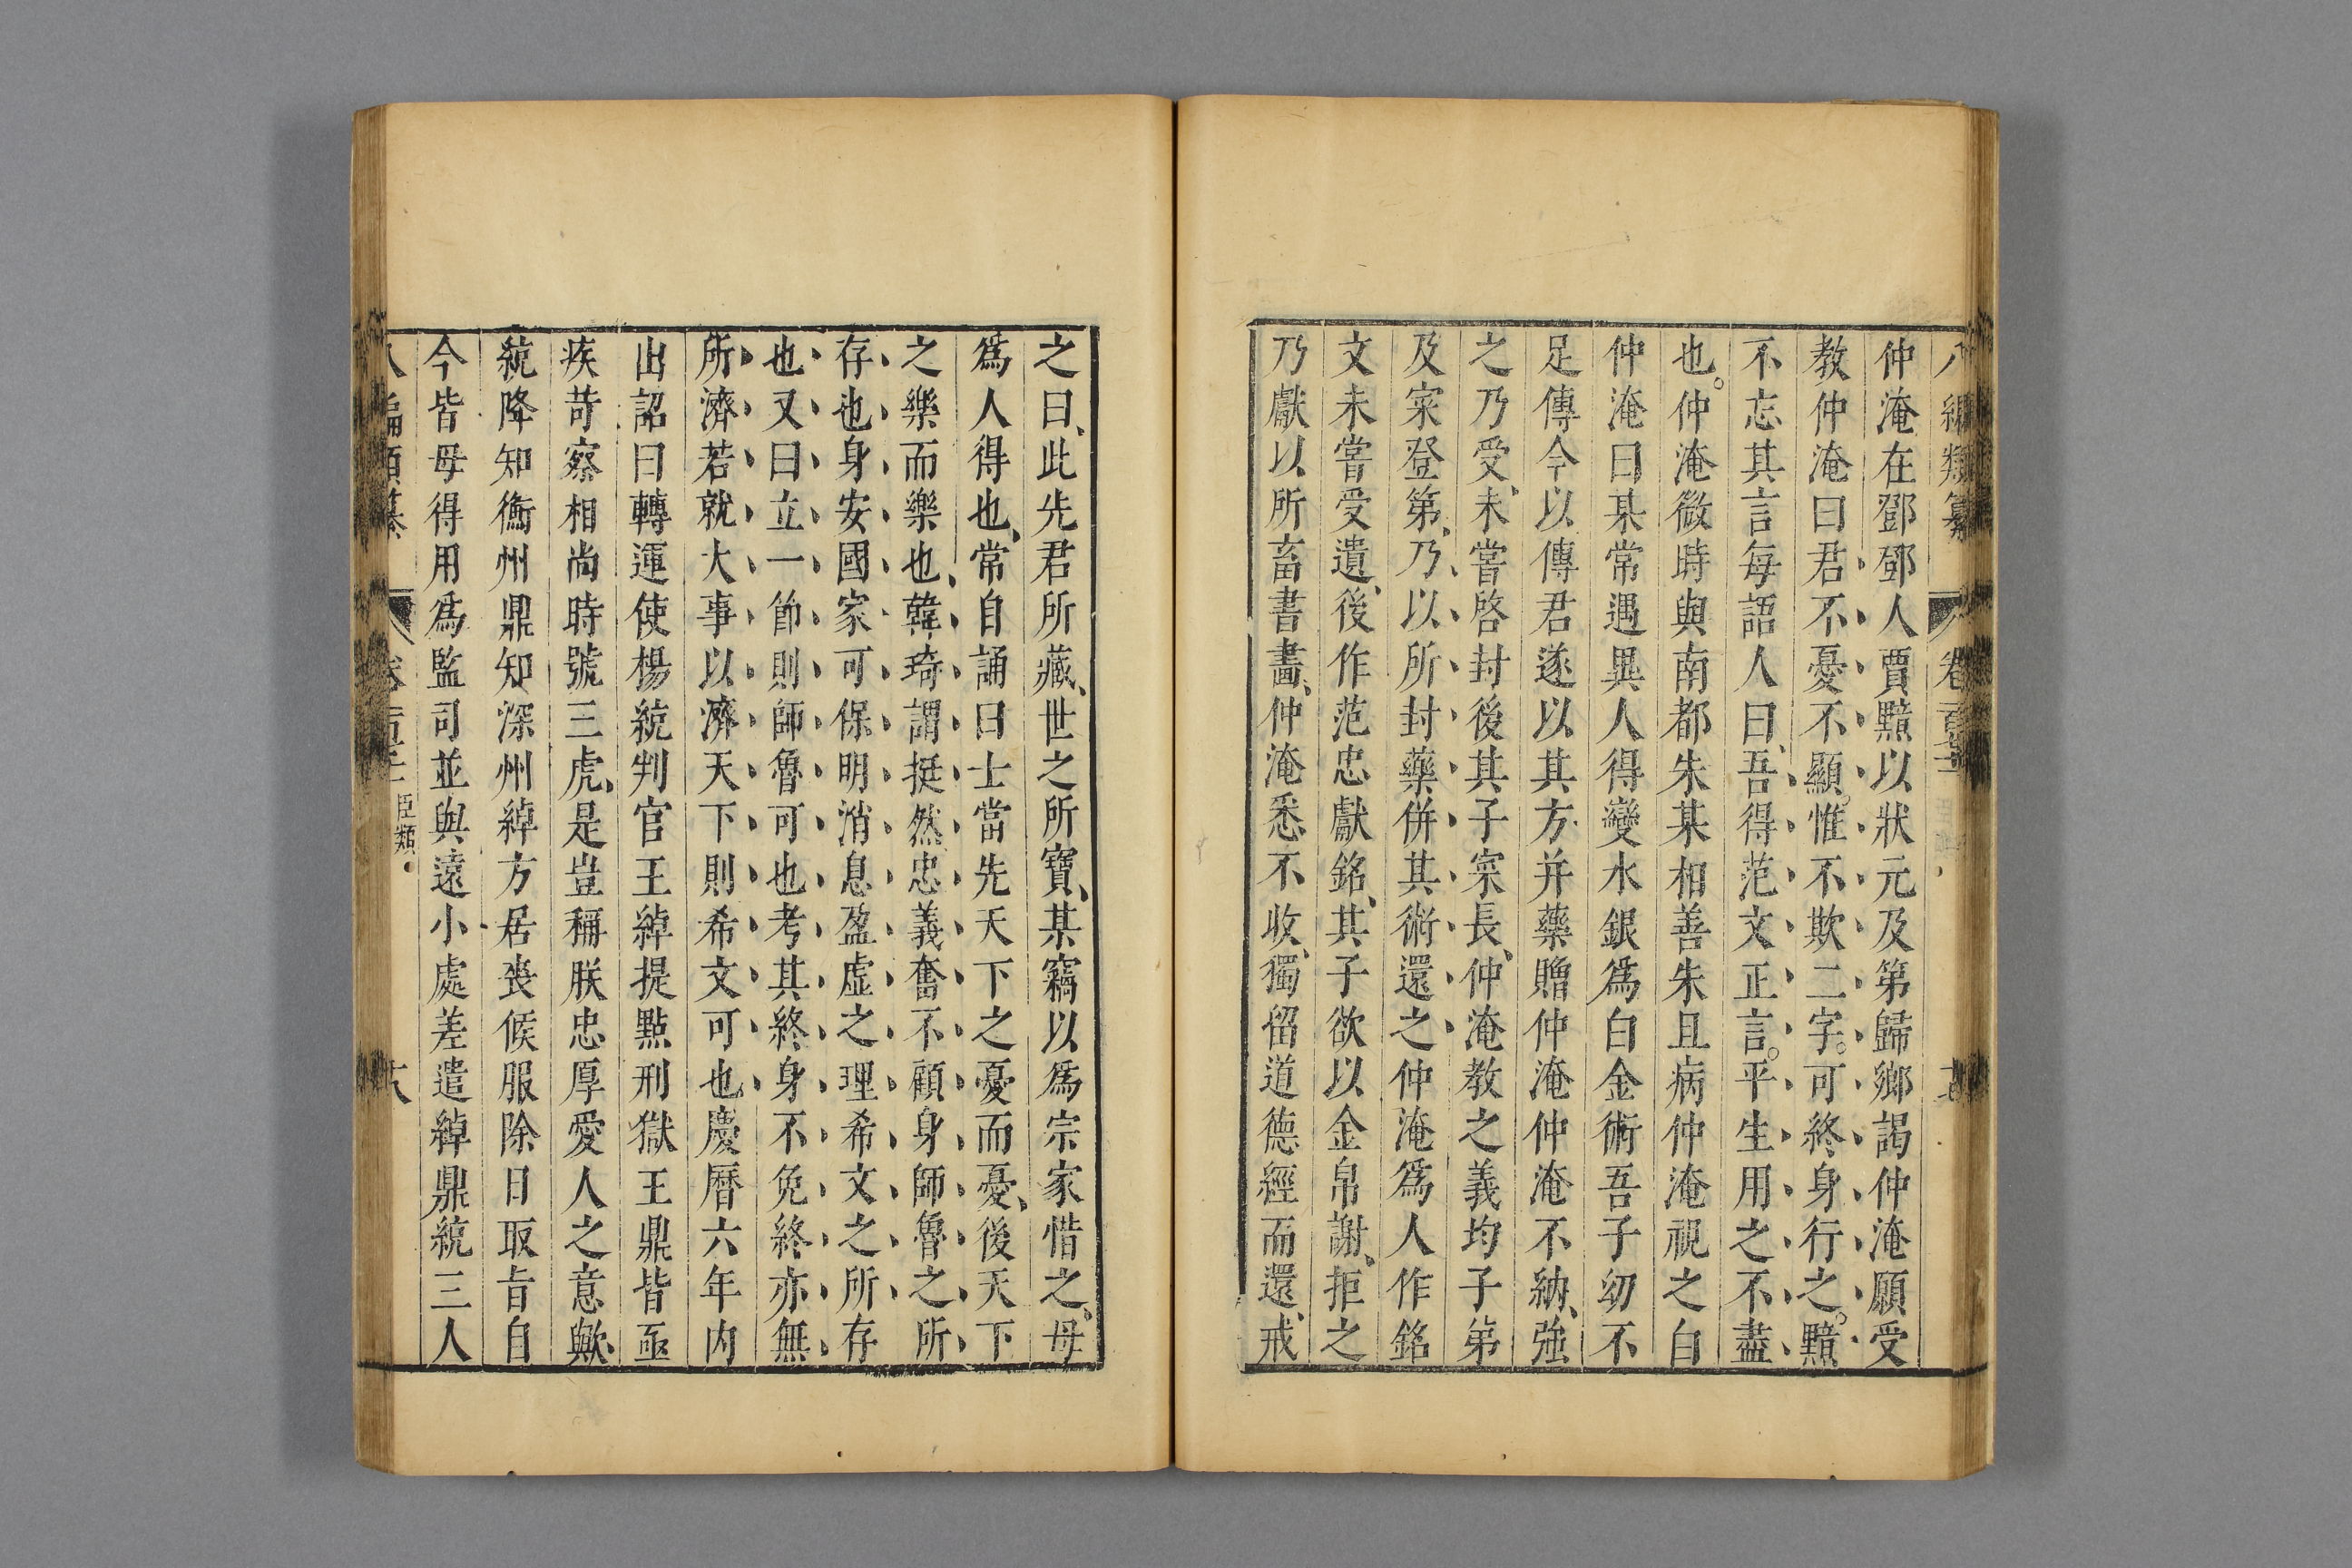 八編類纂 卷
仲淹在鄧鄧人賈黯以狀元及第歸鄉謁仲淹願受
教仲淹曰君不憂不顯。惟不欺二字。可終身行之。黯
不忘其言每語人曰、吾得范文正言。平生用之不盡
也。仲淹微時與南都朱某相善朱且病仲淹視之自
仲淹曰某常遇異人得變水銀爲白金術吾子幼不
足傳今以傳君遂以其方并藥贈仲淹仲淹不納、強
之乃受、未嘗啓封後其子寀長、仲淹教之義均子弟
及寀登第、乃以所封藥併其術還之仲淹爲人作銘
文未嘗受遺、後作范忠獻銘、其子欲以金帛謝、拒之
乃獻以所畜書畵、仲淹悉不收、獨留道德經而還、戒
之曰、此先君所藏、世之所寶、某竊以爲宗家惜之、毋
爲人得也、常自誦曰士當先天下之憂而憂、後天下
之樂而樂也、韓琦謂挺然忠義奮不顧身師魯之所
存也身安國家可保明消息盈虛之理希文之所存
也又曰立一節則師魯可也考其終身不免終亦無
所濟若就大事以濟天下則希文可也慶曆六年内
出詔曰轉運使楊紞判官王綽提點刑獄王鼎皆亟
疾苛察相尚時號三虎、是豈稱朕忠厚愛人之意歟、
紞降知衡州鼎知深州綽方居喪候服除日取旨自
今皆毋得用爲監司並與遠小處差遣綽鼎紞三人
臣類